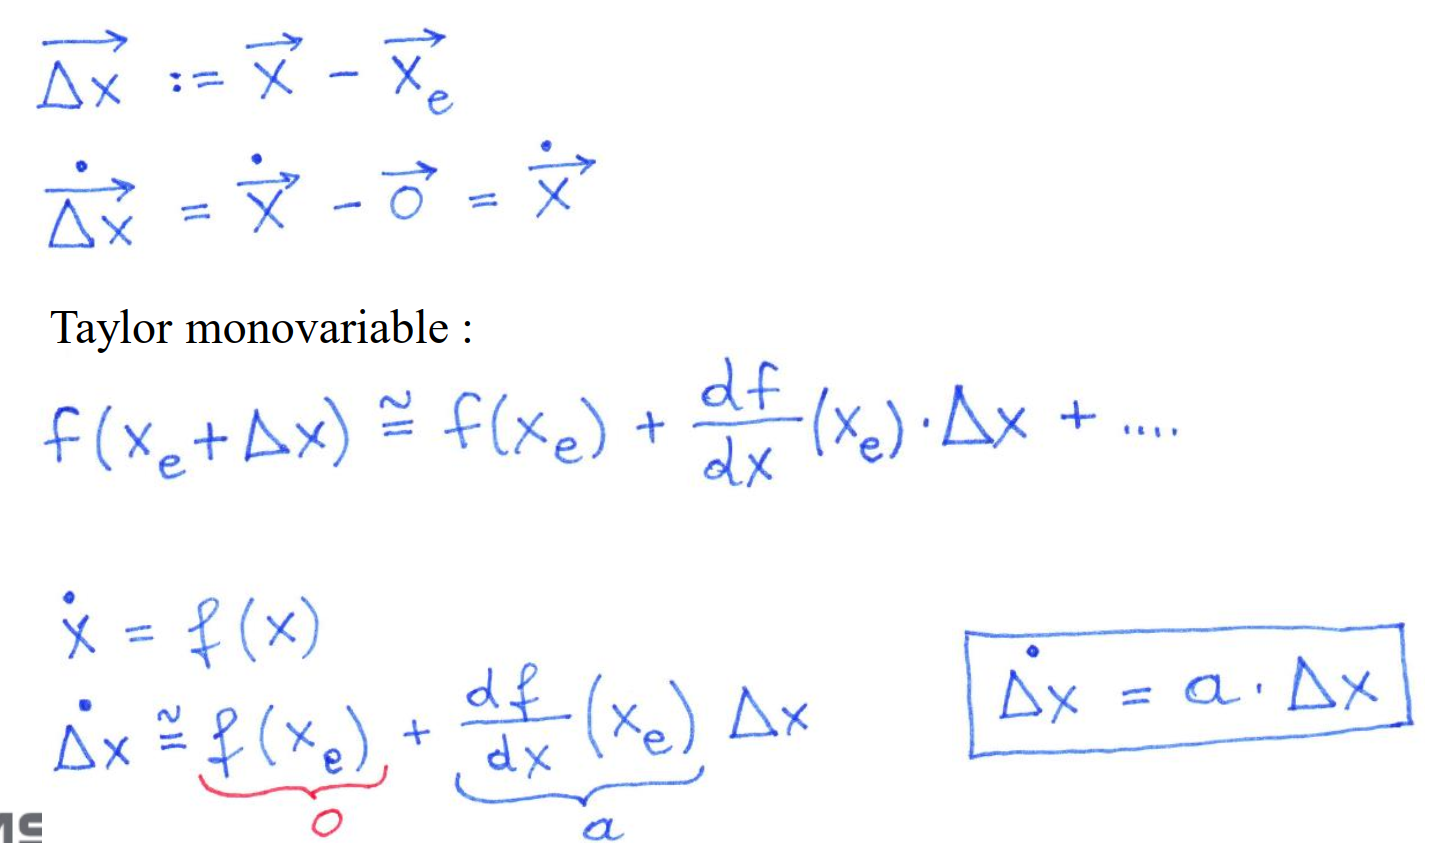 →Δx := →x − →xₑ
→Δẋ = →ẋ − →0 = →ẋ
Taylor monovariable :
f(xₑ+Δx) ≅ f(xₑ) + df/dx (xₑ)·Δx + ....
ẋ = f(x)
Δ̇x ≅ f(xₑ) + df/dx (xₑ) Δx
0
a
Δ̇x = a · Δx